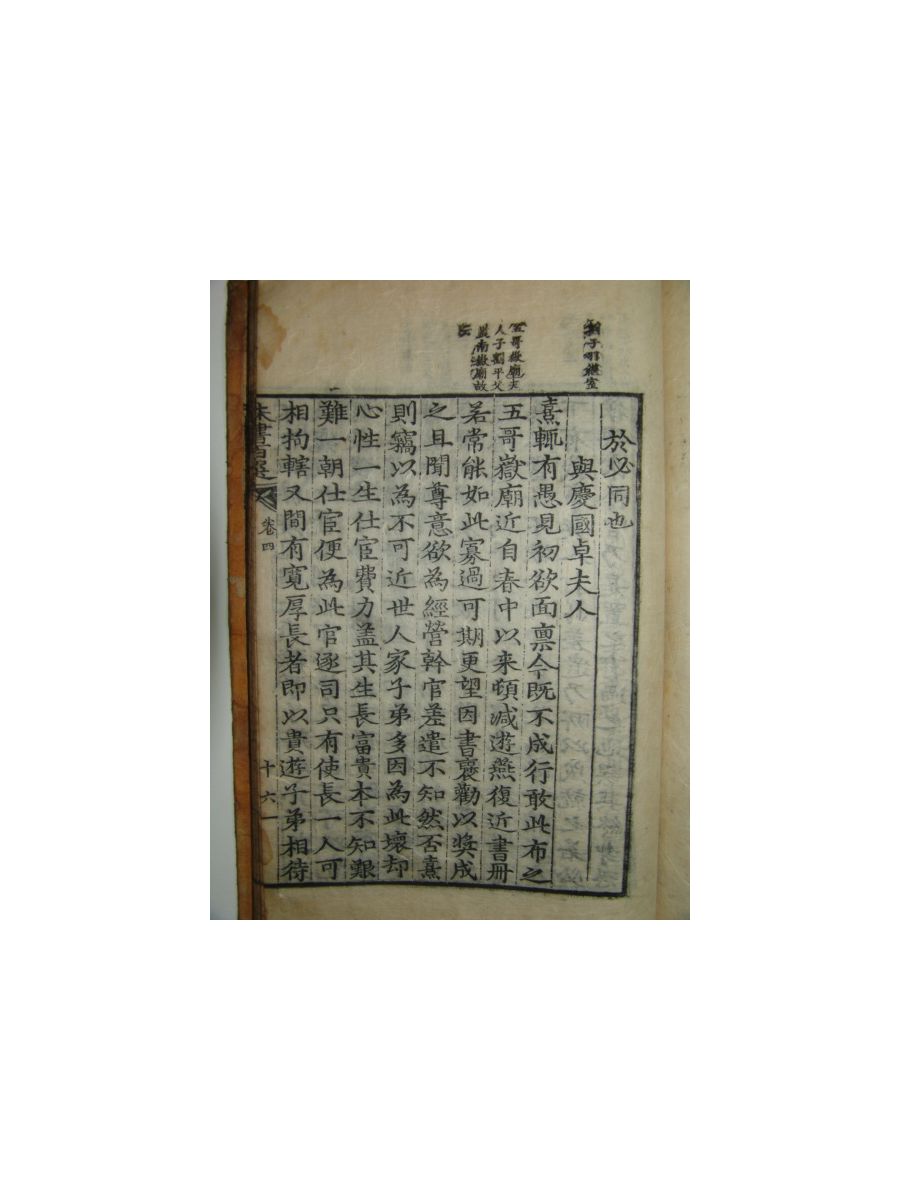 於必同也
與慶國卓夫人
熹輒有愚見初欲面禀今既不成行敢此布之
五哥嶽廟近自春中以来頓减遊燕復近書冊
若常能如此寡過可期更望因書褒勸以奬成
之且聞尊意欲為經營幹官差遣不知然否熹
則竊以為不可近世人家子弟多因為此壞却
心性一生仕宦費力盖其生長富貴本不知艱
難一朝仕宦便為此官逐司只有使長一人可
相拘轄又間有寬厚長者即以貴遊子弟相待
子羽繼室
五哥嶽廟夫
人子劉平父
監南嶽廟故
云
朱書百選
卷四
十六